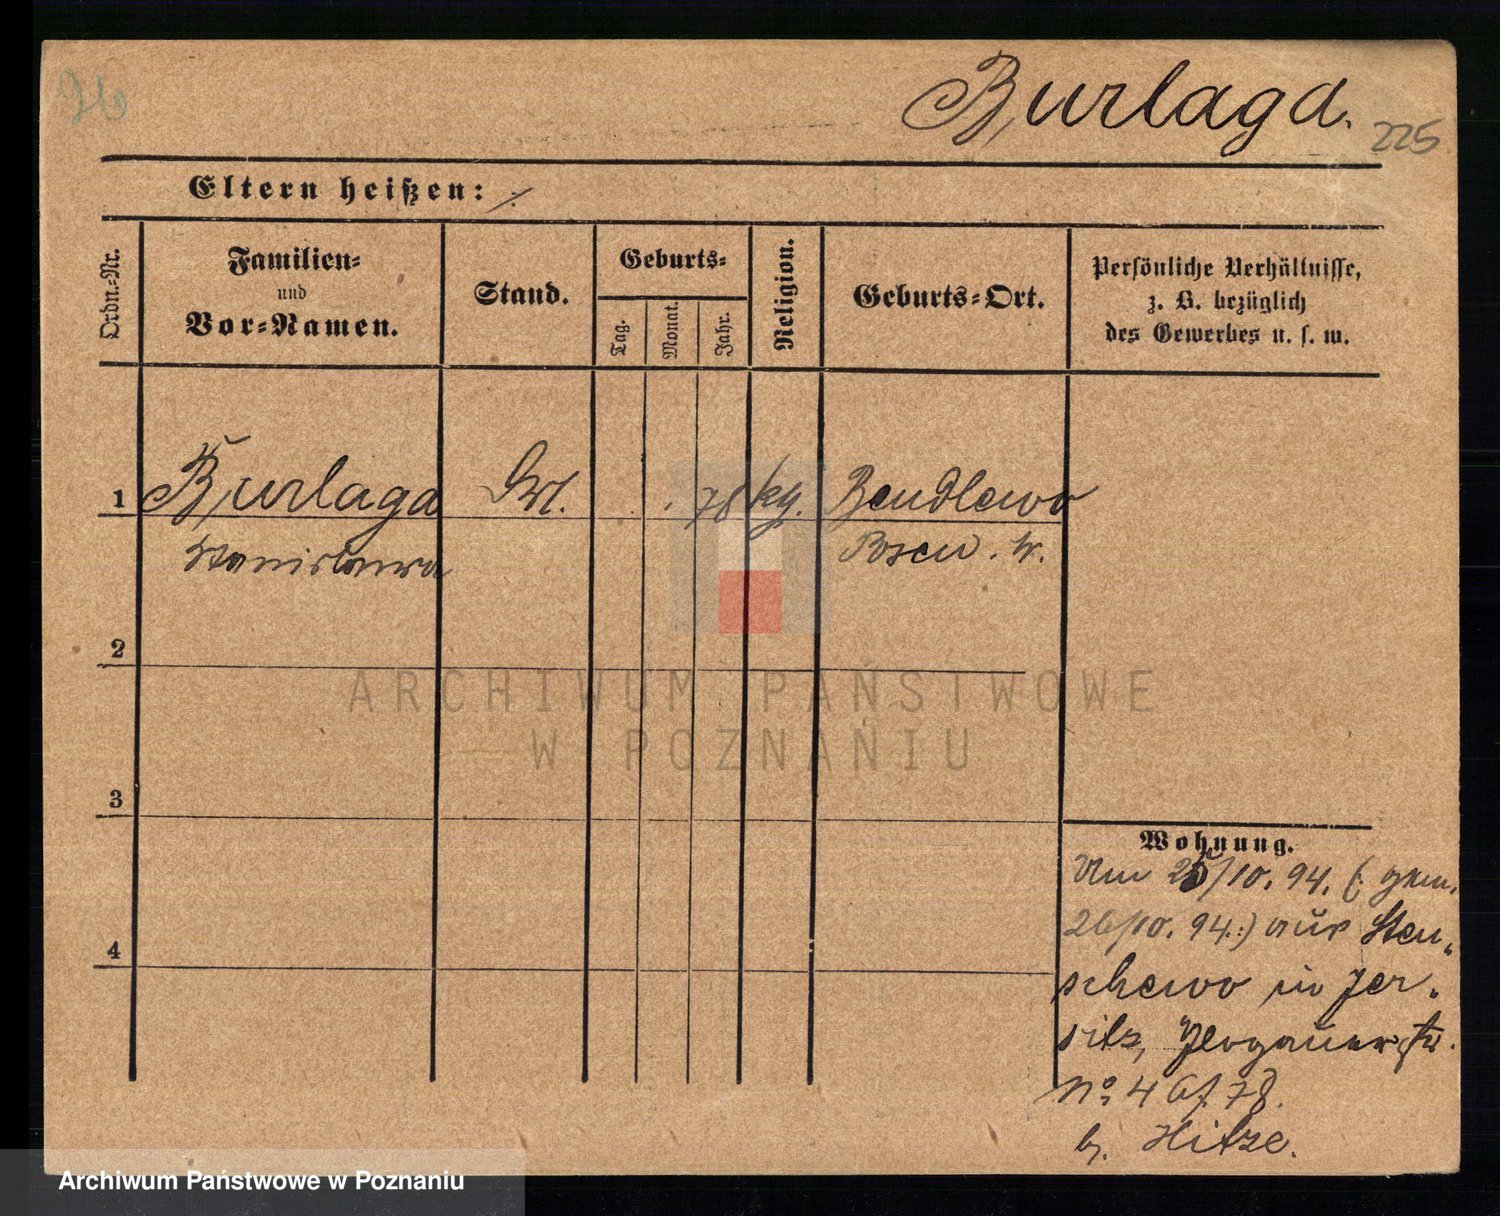 Burlaga.
225
Eltern heißen:
Ordn.-Nr.
Familien-
und
Vor-Namen.
Stand.
Geburts-
Tag.
Monat.
Jahr.
Religion.
Geburts-Ort.
Persönliche Verhältnisse,
z. B. bezüglich
des Gewerbes u. s. w.
1 Burlaga 78 kg. Bendlewo
Stanislawa Posen. W.
2
3
4
Wohnung.
Am 25/10. 94. (: gem.
26/10. 94.:) aus Sten-
schewo in Jer-
sitz, Glogauerstr.
No. 4
b. Hitze.
ARCHIWUM PAŃSTWOWE
W POZNANIU
Archiwum Państwowe w Poznaniu